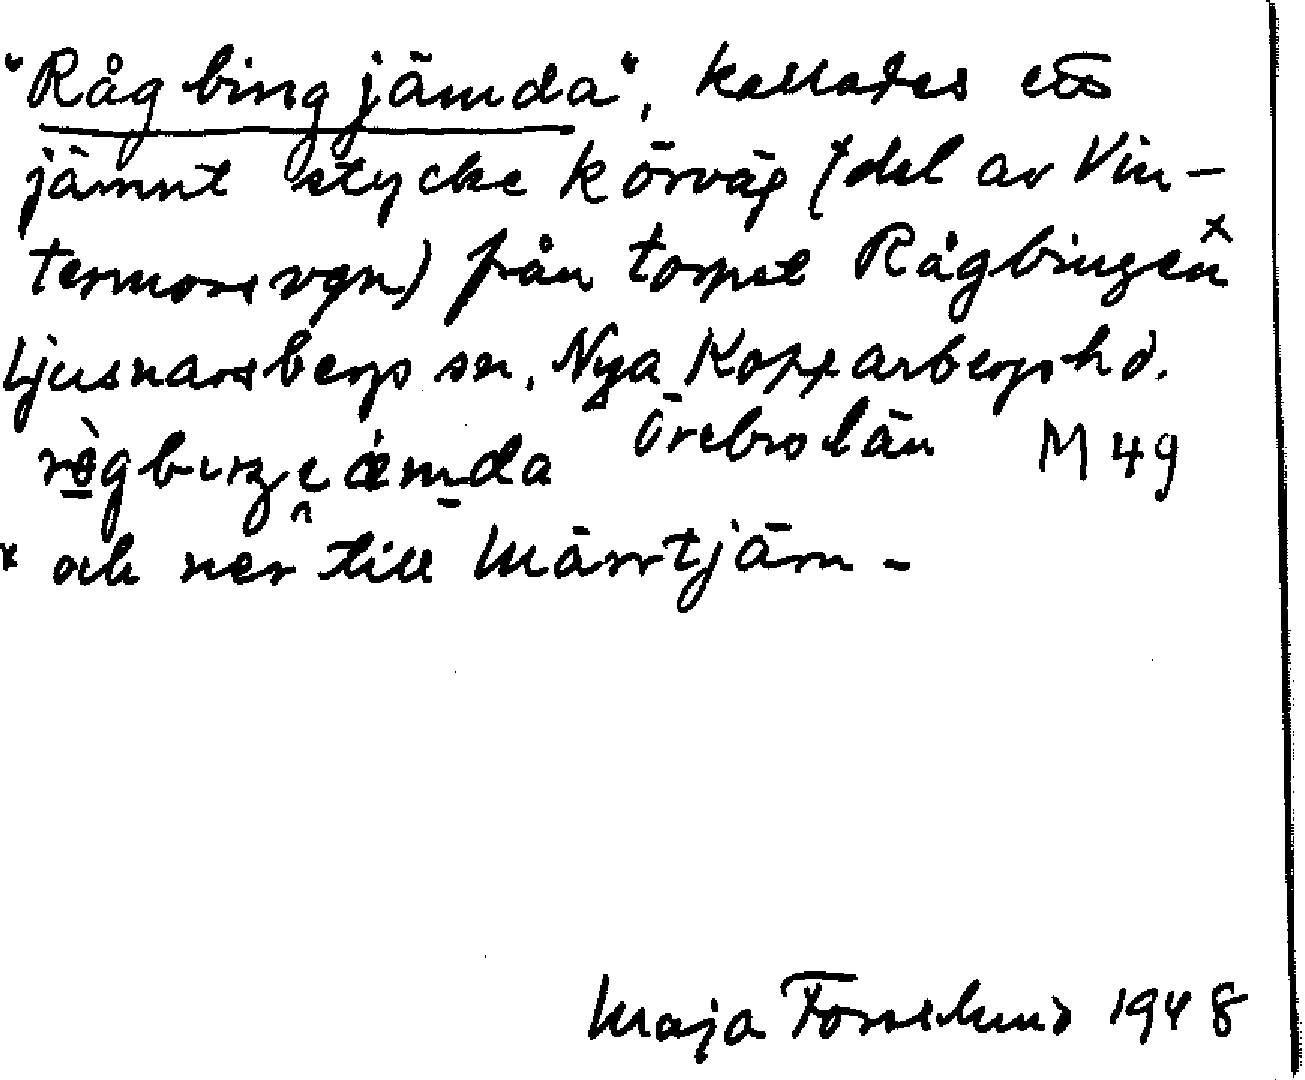 "Rågbingjämda", kallades ett
jämnt stycke körväg (del av Vin-
termossvgn) från torpet Rågbingen x
Ljusnarsbergs sn. Nya Kopparbergs hd.
Örebro län M 49
x och ner till Märrtjärn -
Maja Forsslund 1948